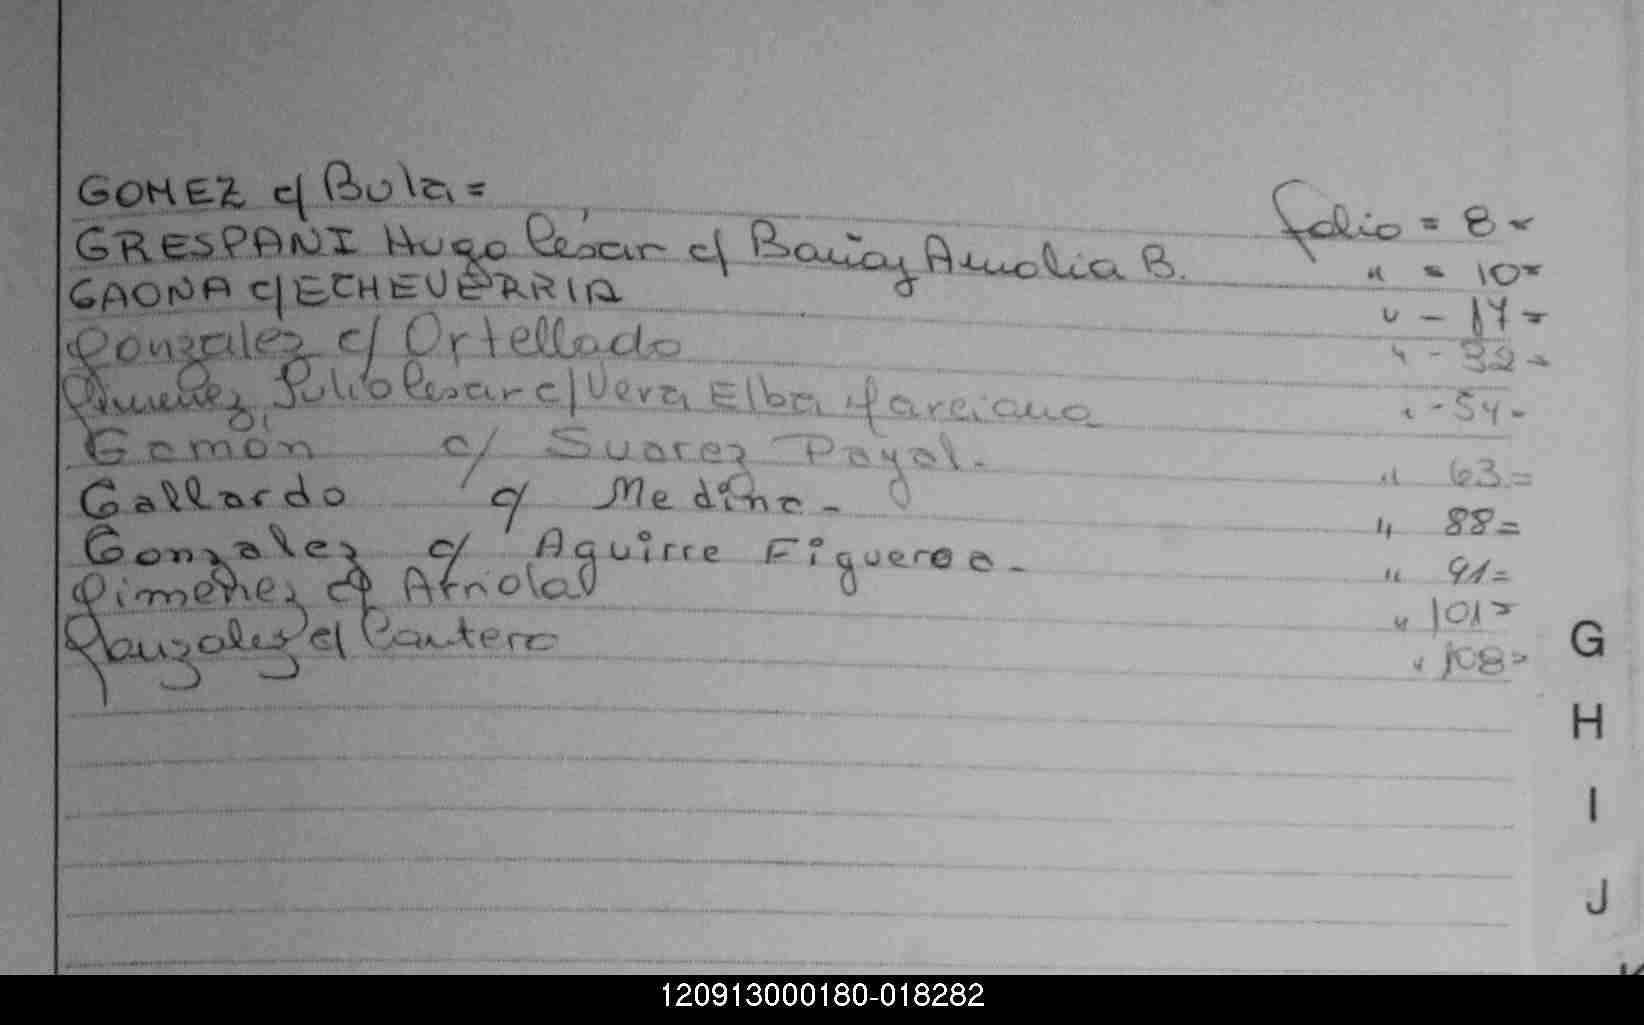 GOMEZ c/ Bula = folio = 8 =
GRESPANI Hugo César c/ Amalia B. " = 10 =
GAONA c/ ECHEVERRIA " - 17 =
Gonzalez c/ Ortellado " - 32 =
Gimenez, Julio Cesar c/ Vera Elba Marciana " - 54 -
Gamón c/ Suarez Payal. " 63 =
Gallardo c/ Medina - " 88 =
Gonzalez c/ Aguirre Figueroa - " 91 =
Gimenez c/ Arriola " 101 =
Gonzalez c/ Cantero " 108 =
G
H
I
J
120913000180-018282